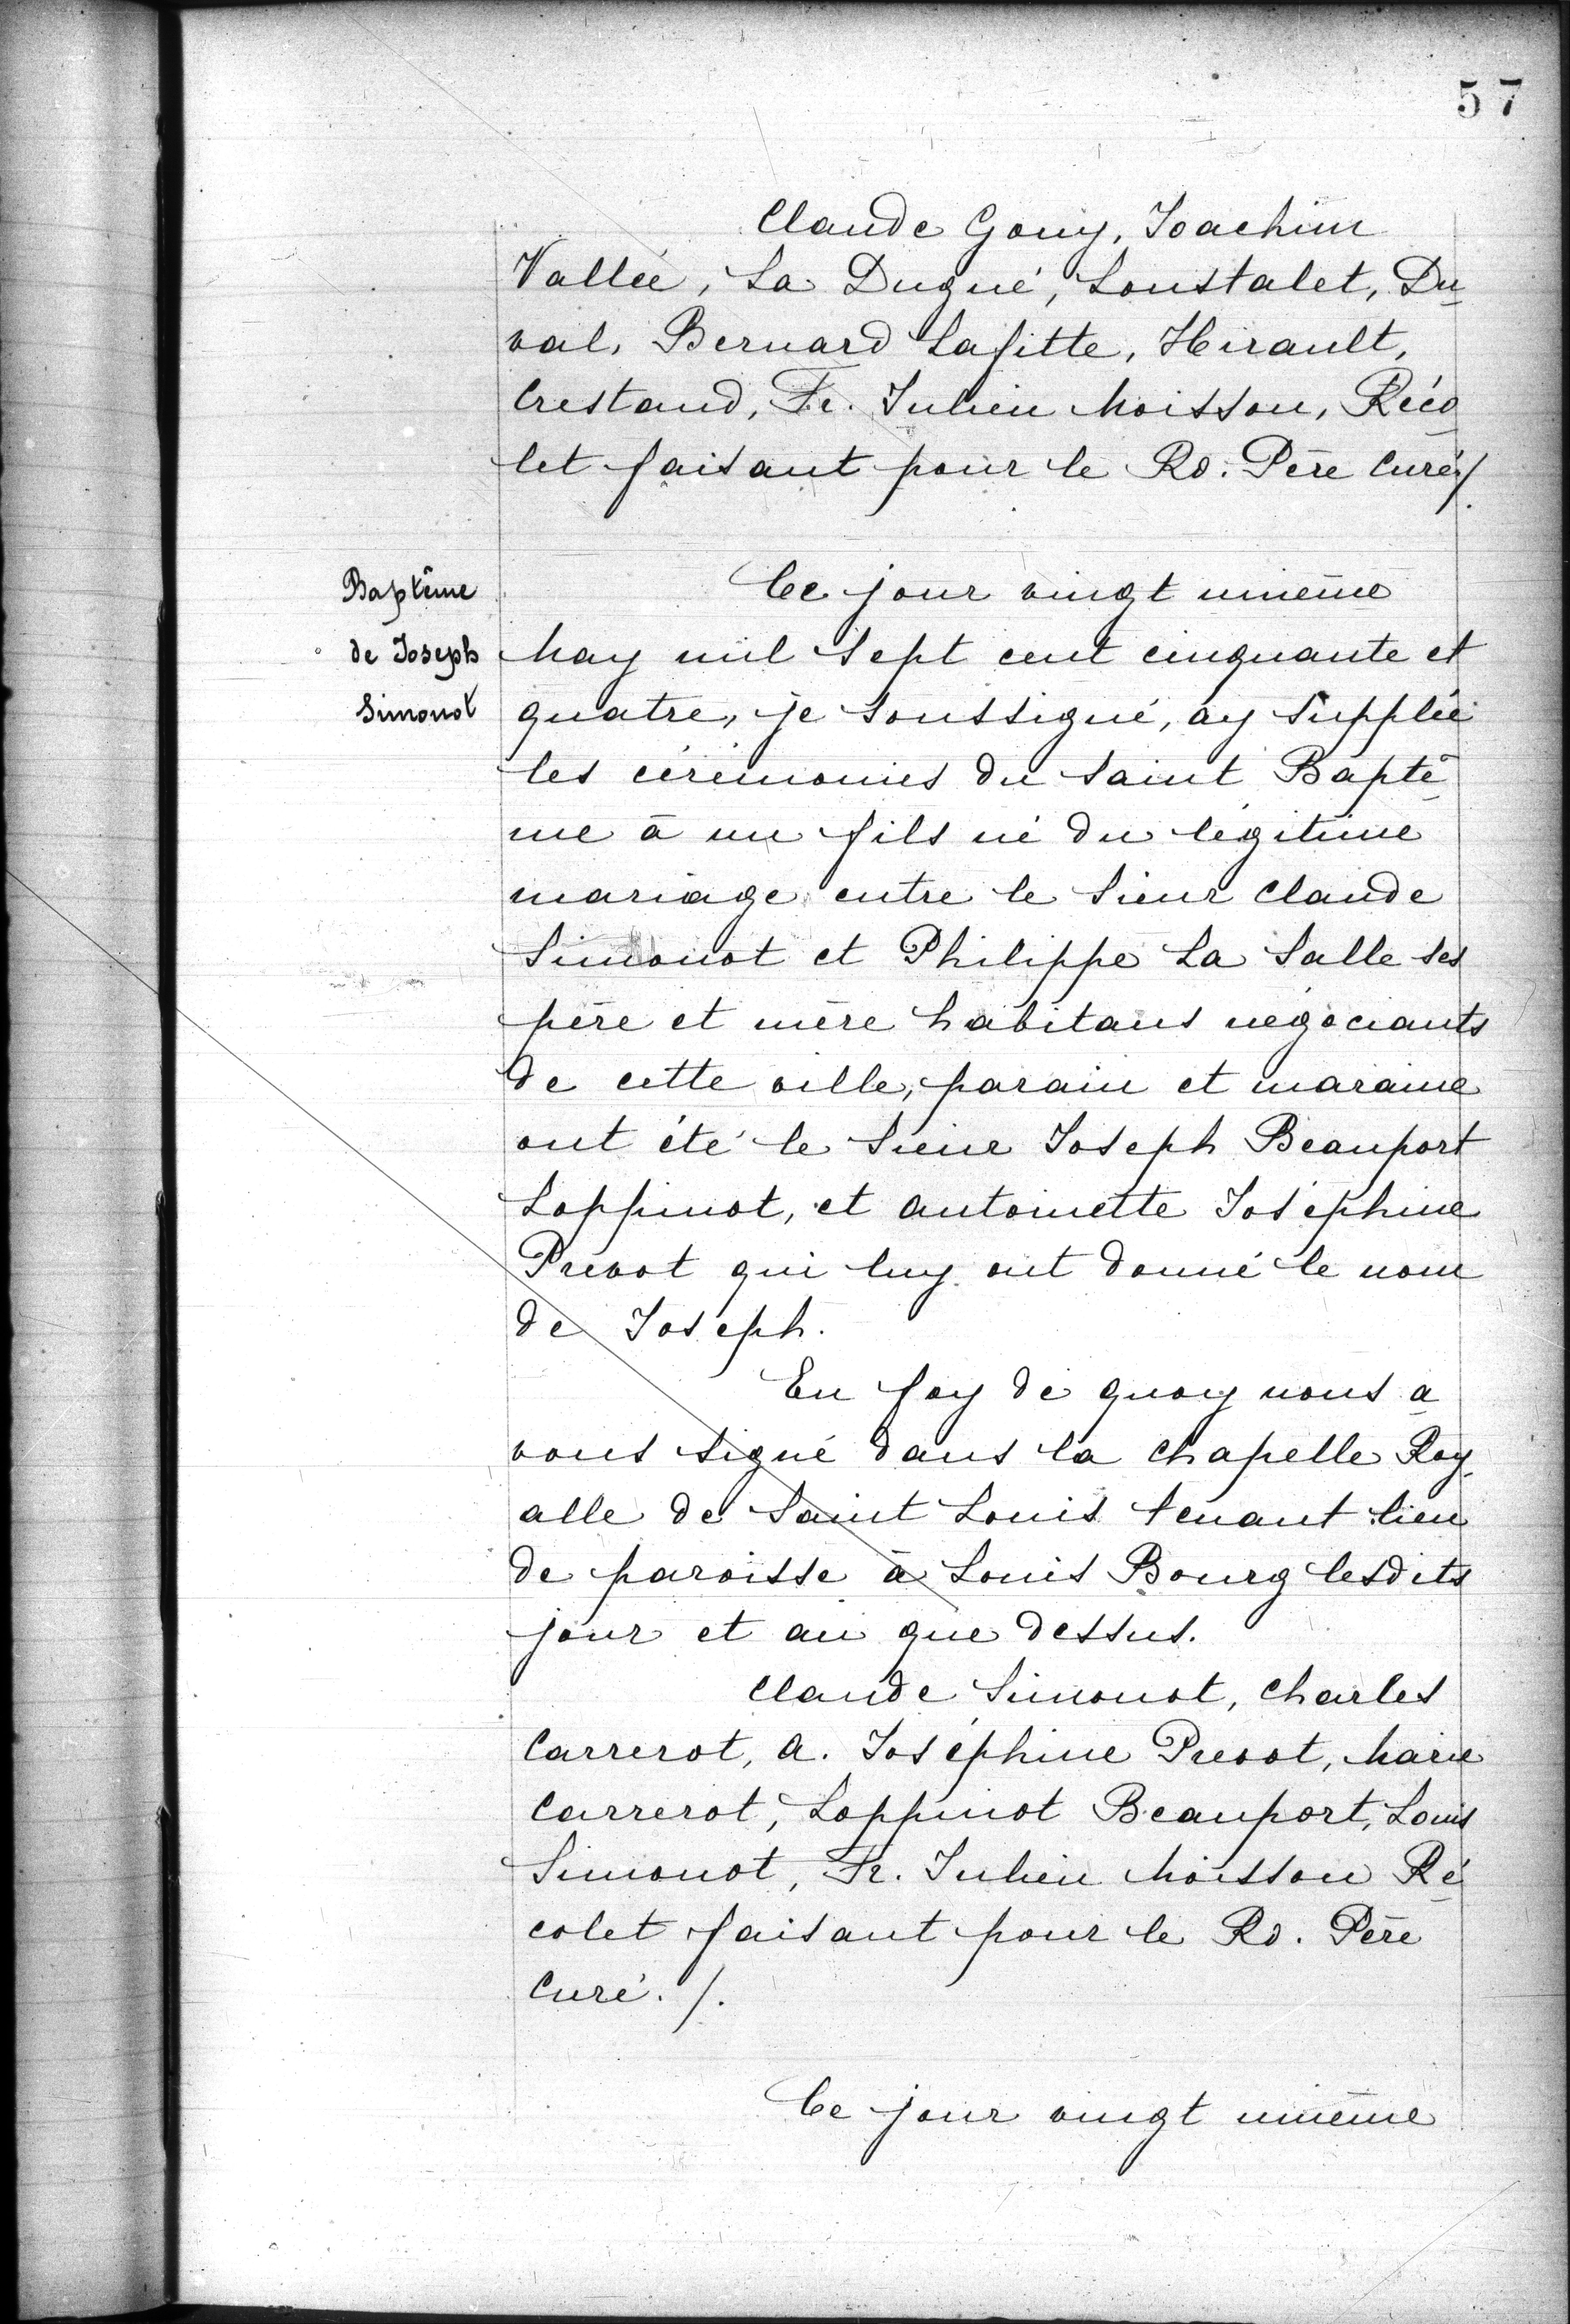 57
Claude Gouy, Joachim
Vallée, La Dugué, Loustalet, Du
val, Bernard Lafitte, Hirault,
Crestaud, Fr. Julien Moisson, Réco
let faisant pour le Rd. Père Curé /.
Baptême
de Joseph
Simonot
Ce jour vingt unième
May mil sept cent cinquante et
quatre, je soussigné, ay supplée
les cérémonies du saint Baptê
me à un fils né du légitime
mariage entre le Sieur Claude
Simonot et Philippe La Salle ses
père et mère habitans négociants
de cette ville, parain et maraine
ont été le Sieur Joseph Beauport
Loppinot, et Antoinette Joséphine
Prevot qui luy ont donné le nom
de Joseph.
En foy de quoy nous a
vons signé dans la Chapelle Roy
alle de Saint Louis tenant lieu
de paroisse à Louis Bourg lesdits
jour et an que dessus.
Claude Simonot, Charles
Carrerot, A. Joséphine Prevot, Marie
Carrerot, Loppinot Beauport, Louis
Simonot, Fr. Julien Moisson Ré
colet faisant pour le Rd. Père
Curé. /.
Ce jour vingt unième